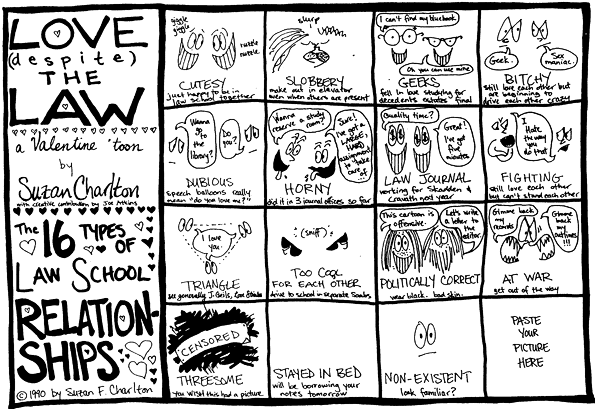 LOVE
(despite)
THE
LAW
a Valentine 'toon
by
Suzan Charlton
with creative contribution by Joe Atkins
The 16 TYPES
OF
LAW SCHOOL
RELATION-
SHIPS
© 1990 by Suzan F. Charlton
giggle
giggle
nuzzle
nuzzle
CUTESY
just happy to be in
law school together
slurp
SLOBBERY
make out in elevator
even when others are present
I can't find my bluebook
Oh you can use mine
GEEKS
fell in love studying for
decedents estates final
Geek.
Sex
maniac.
BITCHY
still love each other but
are beginning to
drive each other crazy
Wanna
go to
the
library?
Do
you?
DUBIOUS
speech balloons really
mean "do you love me?"
Wanna
reserve a study
room?
Sure!
I've got a
LARGE,
HARD
assignment
to take
care of
HORNY
did it in 3 journal offices so far
Quality time?
Great!
I've got
five
minutes.
LAW JOURNAL
working for Skadden &
Cravath next year
I
Hate
the way
you do
that
FIGHTING
still love each other
but can't stand each other
I love
you.
TRIANGLE
see generally J. Geils, Love Stinks
(sniff)
TOO COOL
FOR EACH OTHER
drive to school in separate Saabs
This cartoon
is offensive.
Let's write
a letter to the
editor.
POLITICALLY CORRECT
wear black. bad skin.
Gimme back
my
records
Gimme
back my
outlines
!!!
AT WAR
get out of the way
CENSORED
THREESOME
you wish this had a picture
STAYED IN BED
will be borrowing your
notes tomorrow
NON-EXISTENT
look familiar?
PASTE
YOUR
PICTURE
HERE